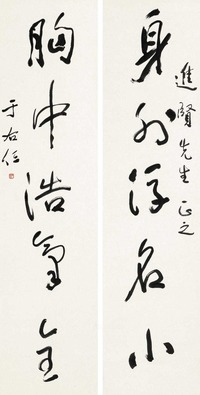 進賢先生正之
身外浮名小
胸中浩氣全
于右任